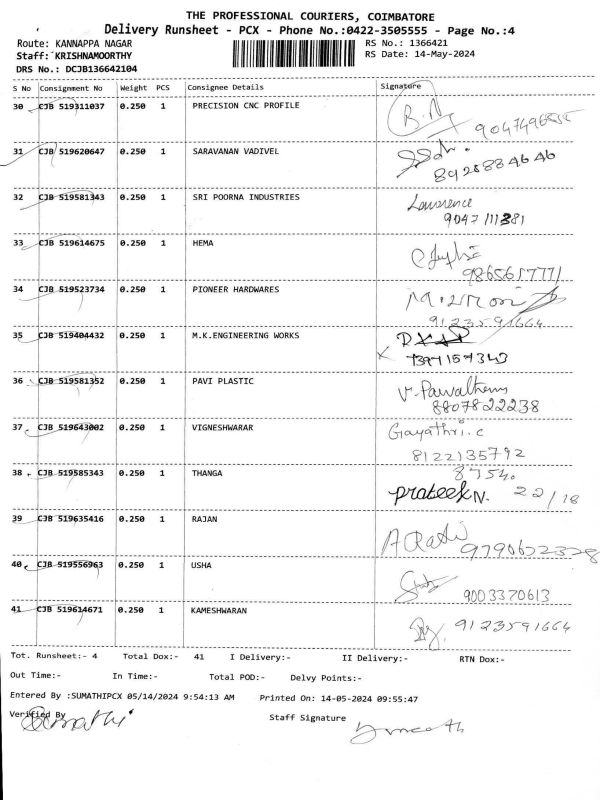 THE PROFESSIONAL COURIERS, COIMBATORE
Delivery Runsheet - PCX - Phone No.:0422-3505555 - Page No.:4
Route: KANNAPPA NAGAR RS No.: 1366421
Staff: KRISHNAMOORTHY RS Date: 14-May-2024
DRS No.: DCJB136642104
S No Consignment No Weight PCS Consignee Details Signature
30 CJB 519311037 0.250 1 PRECISION CNC PROFILE
31 CJB 519620647 0.250 1 SARAVANAN VADIVEL
8925884646
32 CJB 519581343 0.250 1 SRI POORNA INDUSTRIES Lawrence
9047111381
33 CJB 519614675 0.250 1 HEMA
9865617771
34 CJB 519523734 0.250 1 PIONEER HARDWARES
9123591664
35 CJB 519404432 0.250 1 M.K.ENGINEERING WORKS
7397157343
36 CJB 519581352 0.250 1 PAVI PLASTIC
8807822238
37 CJB 519643002 0.250 1 VIGNESHWARAR Gayathri.c
8122135792
38 CJB 519585343 0.250 1 THANGA 8754.
prateek N. 22/18
39 CJB 519635416 0.250 1 RAJAN
40 CJB 519556963 0.250 1 USHA
9003370613
41 CJB 519614671 0.250 1 KAMESHWARAN
9123591664
Tot. Runsheet:- 4 Total Dox:- 41 I Delivery:- II Delivery:- RTN Dox:-
Out Time:- In Time:- Total POD:- Delvy Points:-
Entered By :SUMATHIPCX 05/14/2024 9:54:13 AM Printed On: 14-05-2024 09:55:47
Verified By Staff Signature